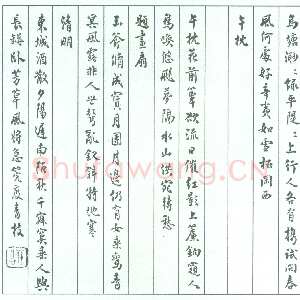 烏塘渺〻綠平隄〻上行人各有攜試問春
風何處好辛夷如雪柘岡西
午枕
午枕花前簟欲流日催紅影上簾鉤窺人
鳥喚悠颺夢隔水山供宛轉愁
題畫扇
玉斧修成寶月團月邊仍有女乘鸞青
冥風露非人世鬢亂釵斜特地寒
清明
東城酒散夕陽遲南陌秋千寂寞垂人與
長瓶卧芳草風將急管度青枝
Shufawang.CN